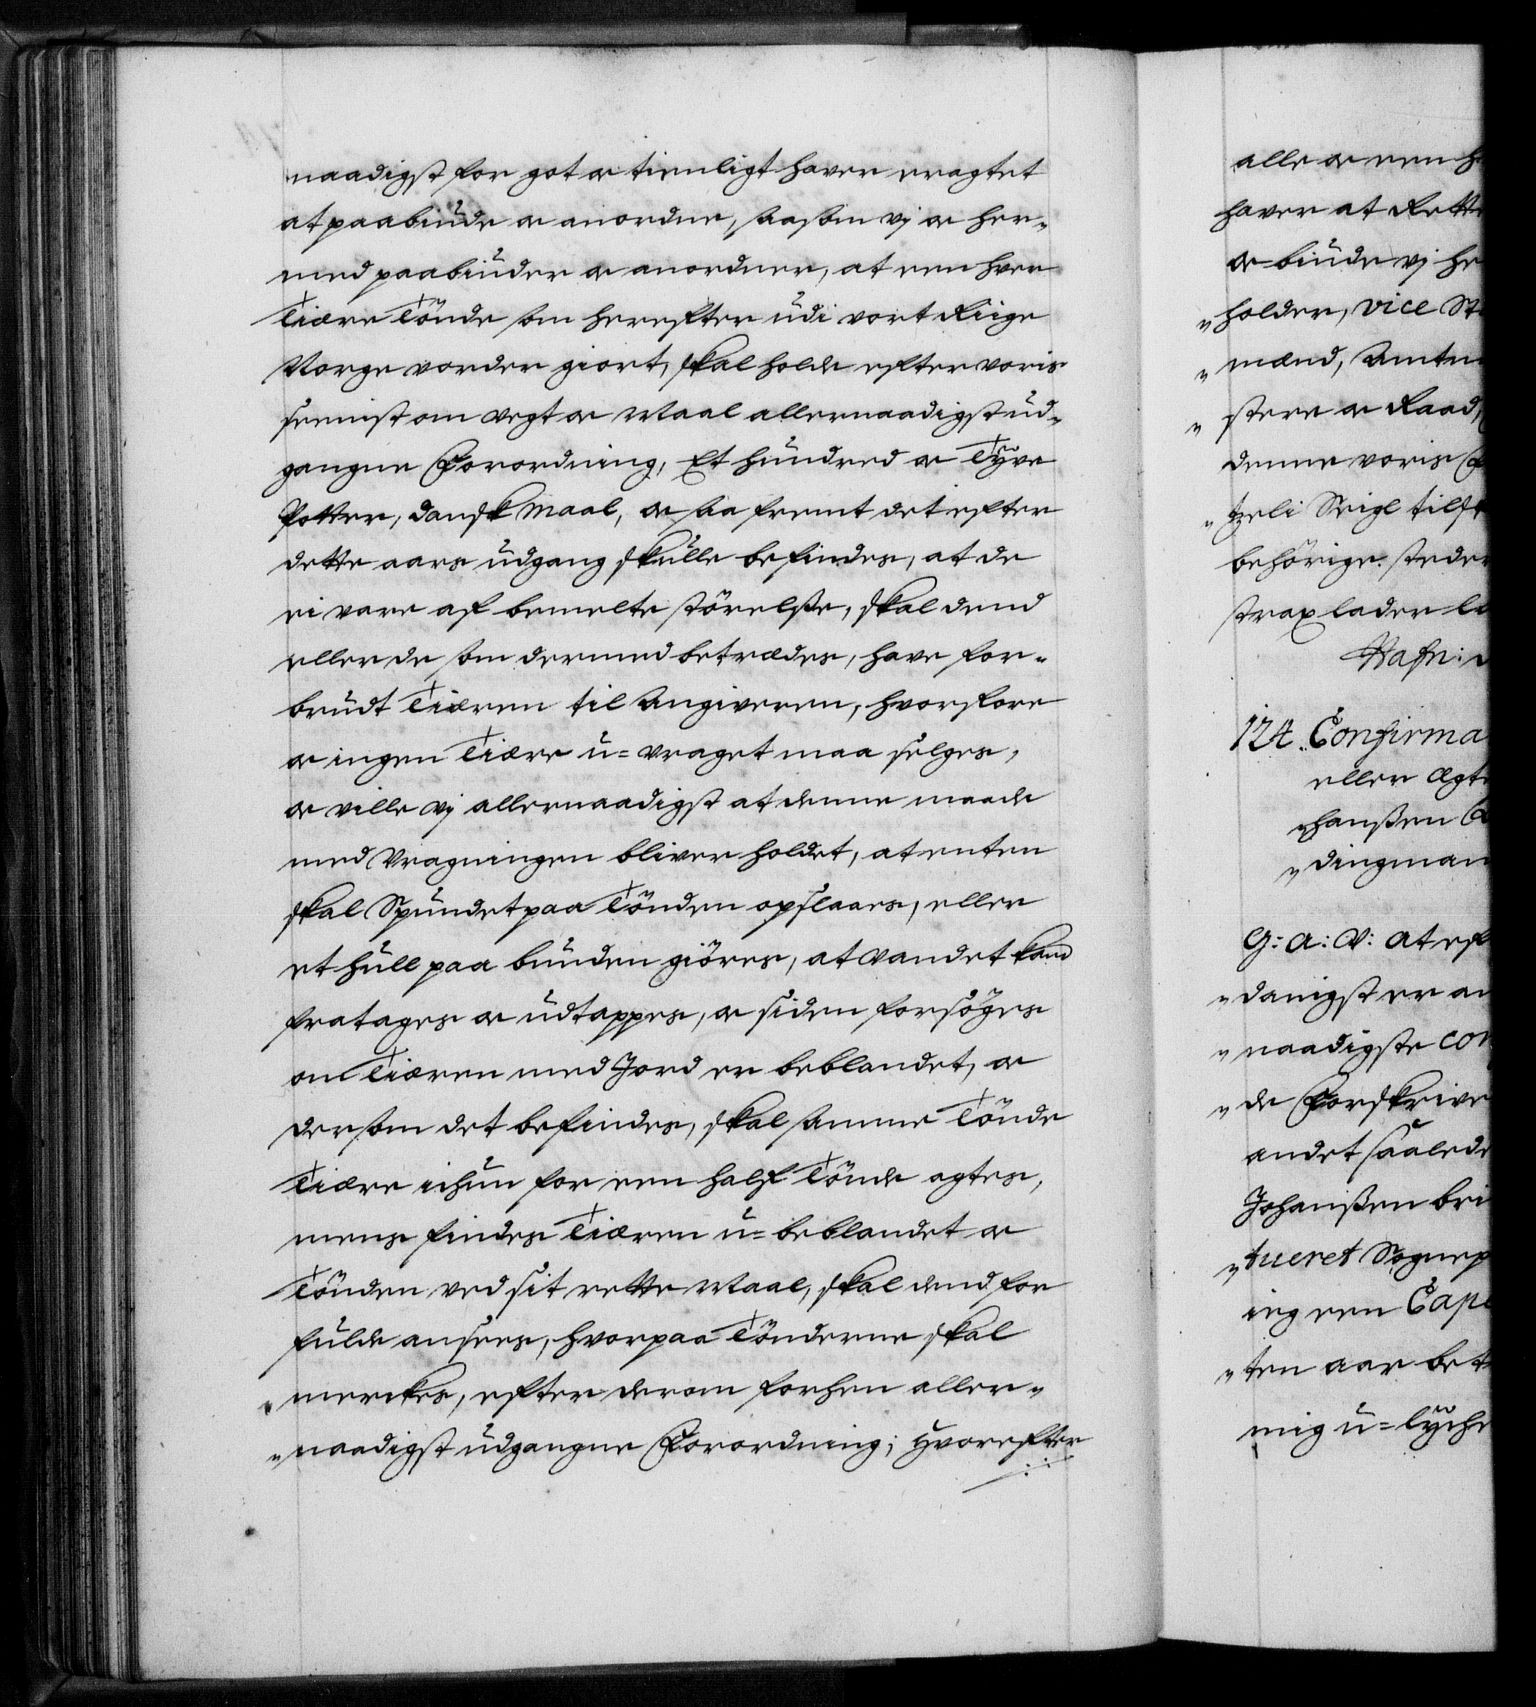 naadigst for got os tienligt haver eragtet
at paabiude os anordne, saasom vj os her„
med paabiuder os anordner, at een hver
Tiære Tönde som herefter udi vort Riige
Norge vorder giort, skal holde efter voris
seenist om vegt os Maal allernaadigst ud„
gangne Forordning, Et hundred os Tyve
Potter, Dansk Maal, os saa fremt det efter
dette aars udgang skulle befindes, at de
ei vare af bemelte störelße, skal dend
eller de som dermed betrædes, have for„
brudt Tiæren til Angiveren, hvorfore
os ingen Tiære u=vraget maa selges,
os ville vj allernaadigst at denne maade
med Vragningen bliver holdet, at enten
skal Spundet paa Tönden opslaaes, eller
et hull paa bunden giöres, at vandet kand
fratages os udtappes, os siden forsöges
om Tiæren med Jord er beblandet, os
dersom det befindes, skal samme Tönde
Tiære ichun for een half Tönde agtes,
mens findes Tiæren u=beblandet os
Tönden ved sit rette Maal, skal dend for
fulde ansees, hvorpaa Tönderne skal
merckes, efter derom forhen aller„
„naadigst udgangne Forordning; Hvorefter
alle os een h
haver at Rette
os biude vj he
„holder, Vice St
„mænd, Amtm
„stere os Raad,
denne voris
„tzeli Seigl tilst
behörige steder
strax lader l
Hafn:
124. Confirma
eller Ægt
„hanßen
„dingman
G: A: V: At ef
„danigst er an
„naadigste con
„de Forskrive
andet saalede
Johanßen bri
„tueret Sognep
ieg een Cape
„ten aar bet
mig u=lyche